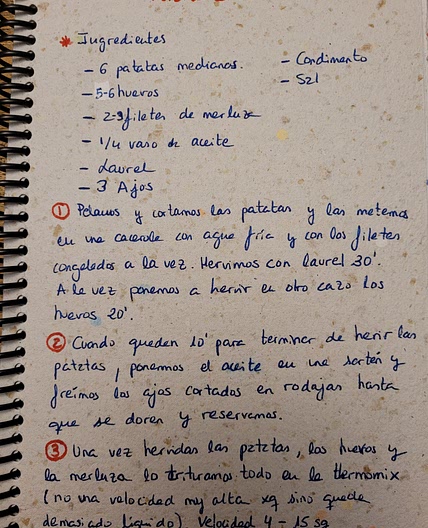 * Ingredientes
- 6 patatas medianas.
- Condimento
- Sal
- 5-6 huevos
- 2-3 filetes de merluza
- 1/4 vaso de aceite
- Laurel
- 3 Ajos
① Pelamos y cortamos las patatas y las metemos
en una cacerola con agua fría y con los filetes
congelados a la vez. Hervimos con laurel 30'.
A la vez ponemos a hervir en otro cazo los
huevos 20'.
② Cuando queden 10' para terminar de hervir las
patatas, ponemos el aceite en una sartén y
freímos los ajos cortados en rodajas hasta
que se doren y reservamos.
③ Una vez hervidas las patatas, los huevos y
la merluza lo trituramos todo en la thermomix
(no una velocidad muy alta xq sino queda
demasiado líquido) Velocidad 4 - 15 sg